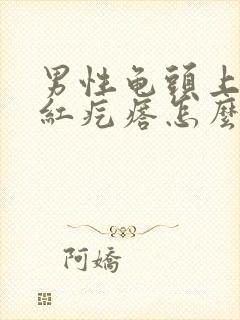 男性龟頭上
紅疙瘩怎麼
阿嬌